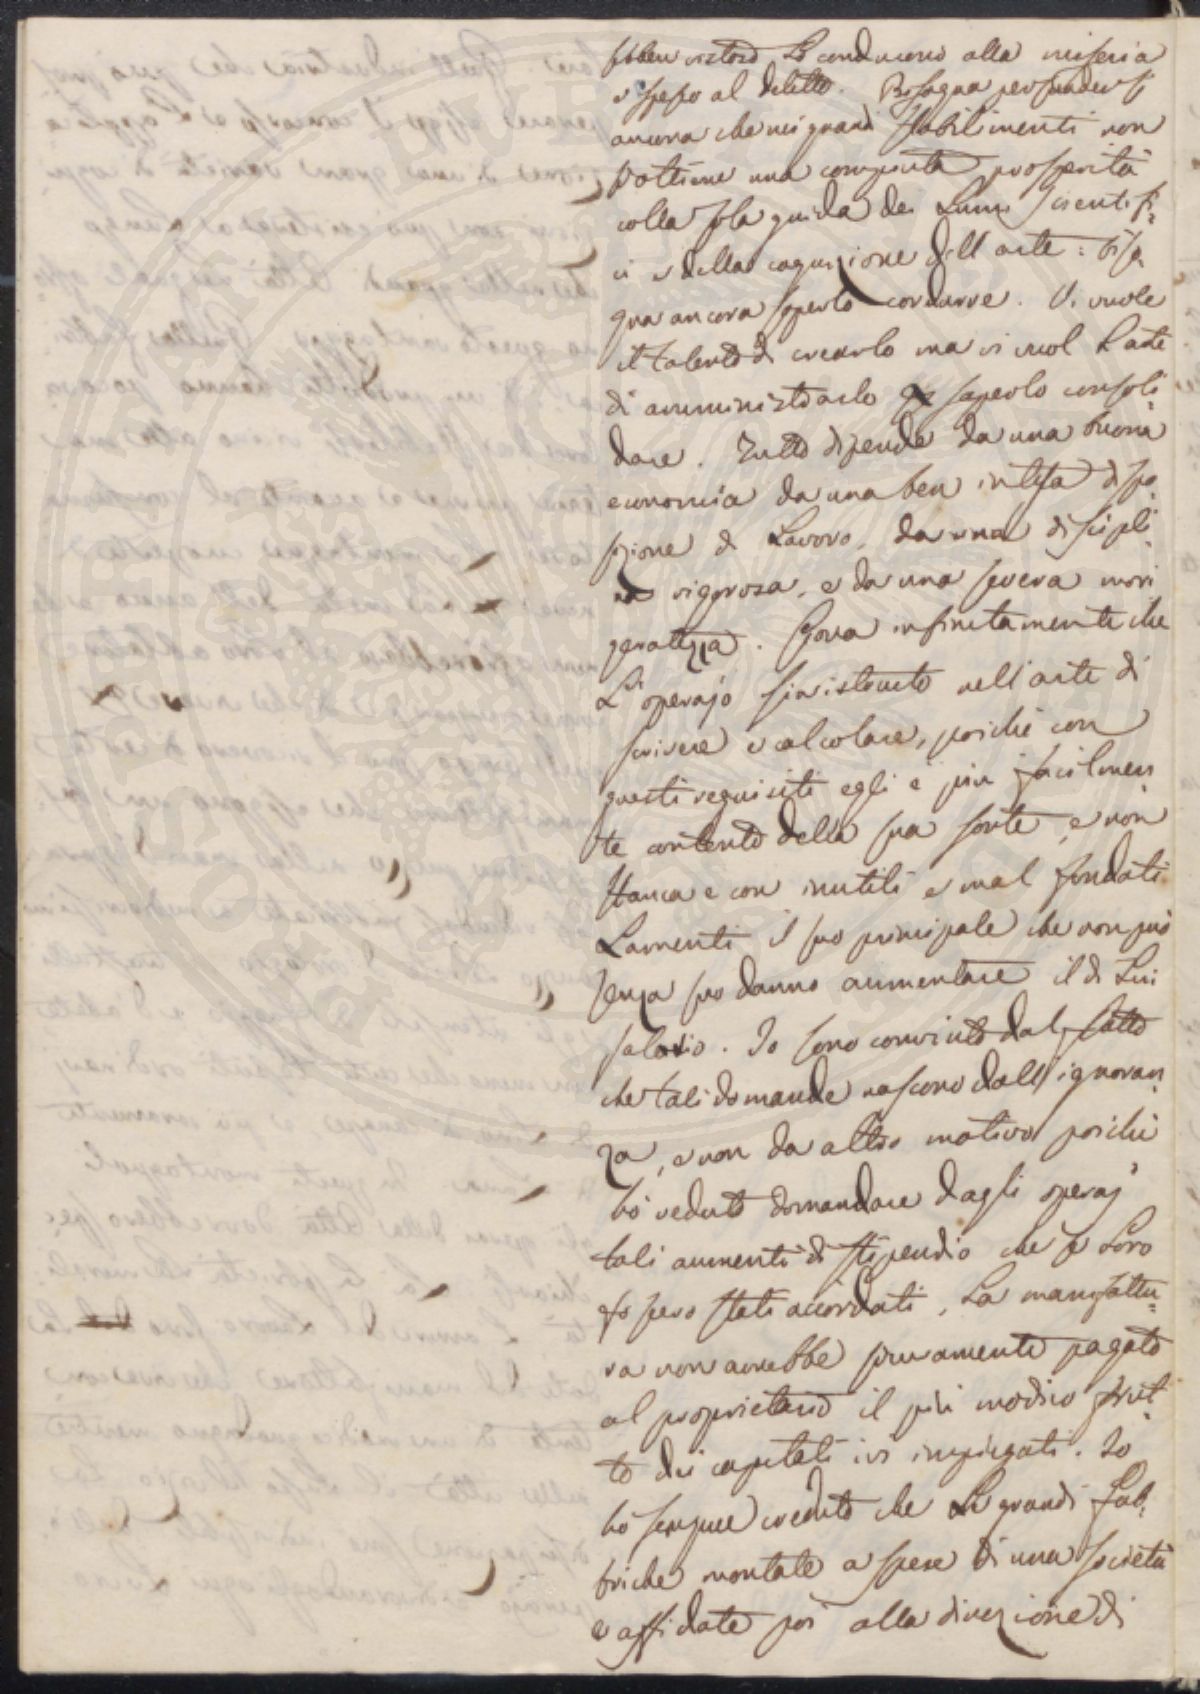 ebben ristorò Lo conducono alla miseria
e spesso al delitto. Bisogna persuadersi
ancora che nei grandi stabilimenti non
s'ottiene una compiuta prosperità
colla sola guida dei Lumi scientifi=
ci e della cognizione dell'arte: biso,
gna ancora saperlo condurre. Vi vuole
il talento di crearlo ma vi vuol L'arte
di amministrarlo saperlo consoli
dare. Tutto dipende da una buona
economia da una ben intesa dispo
sizione di Lavoro, da una discipli
na rigorosa, e da una severa mori
geratezza. Giova infinitamente che
L'operajo sia istruito nell'arte di
scrivere e calcolare, poichè con
questi requisiti egli è più facilmen
te contento della sua sorte, e non
stanca e con inutili e mal fondati
Lamenti il suo principale che non può
senza suo danno aumentare il di Lui
salario. Io sono convinto dal fatto
che tali domande nascono dall'ignoran
za, e non da altro motivo poichè
hò veduto domandare dagli operaj
tali aumenti di stipendio che se Loro
fossero stati accordati, La manifattu=
ra non avrebbe sicuramente pagato
al proprietario il più modico frut=
to dei capitali ivi impiegati. Io
hò sempre creduto che Le grandi Fab=
briche montate a spese di una società
e affidate poi alla direzione di